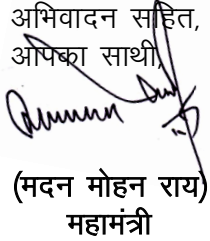 अभिवादन सहित,
आपका साथी,
(मदन मोहन राय)
महामंत्री